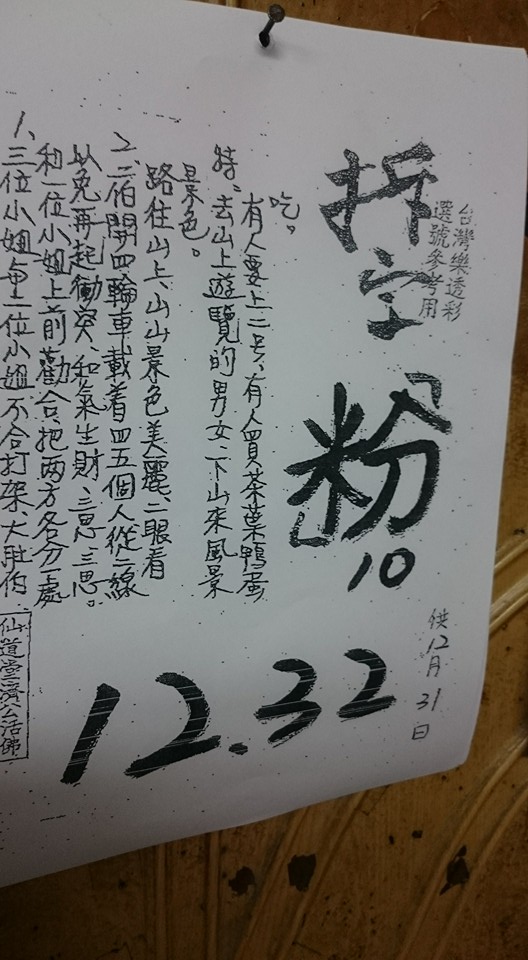 台灣樂透彩
選號參考用
拆字「粉」
10
12.32
供12月31日
1、三位小姐每一位小姐不合打架大肚伯
和一位小姐上前勸合、把兩方各分一處
以免再起衝突、和氣生財、三思三思。
2、二伯開四輪車載着四五個人從二線
路往山上、山山景色美麗、二眼看
景色。
特、去山上遊覽的男女、下山來風景
有人要上二号、有人買茶葉鴨蛋
吃。
仙道堂濟公活佛